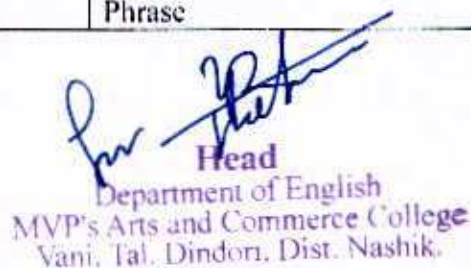 Phrase
Head
Department of English
MVP's Arts and Commerce College
Vani, Tal. Dindori, Dist. Nashik.